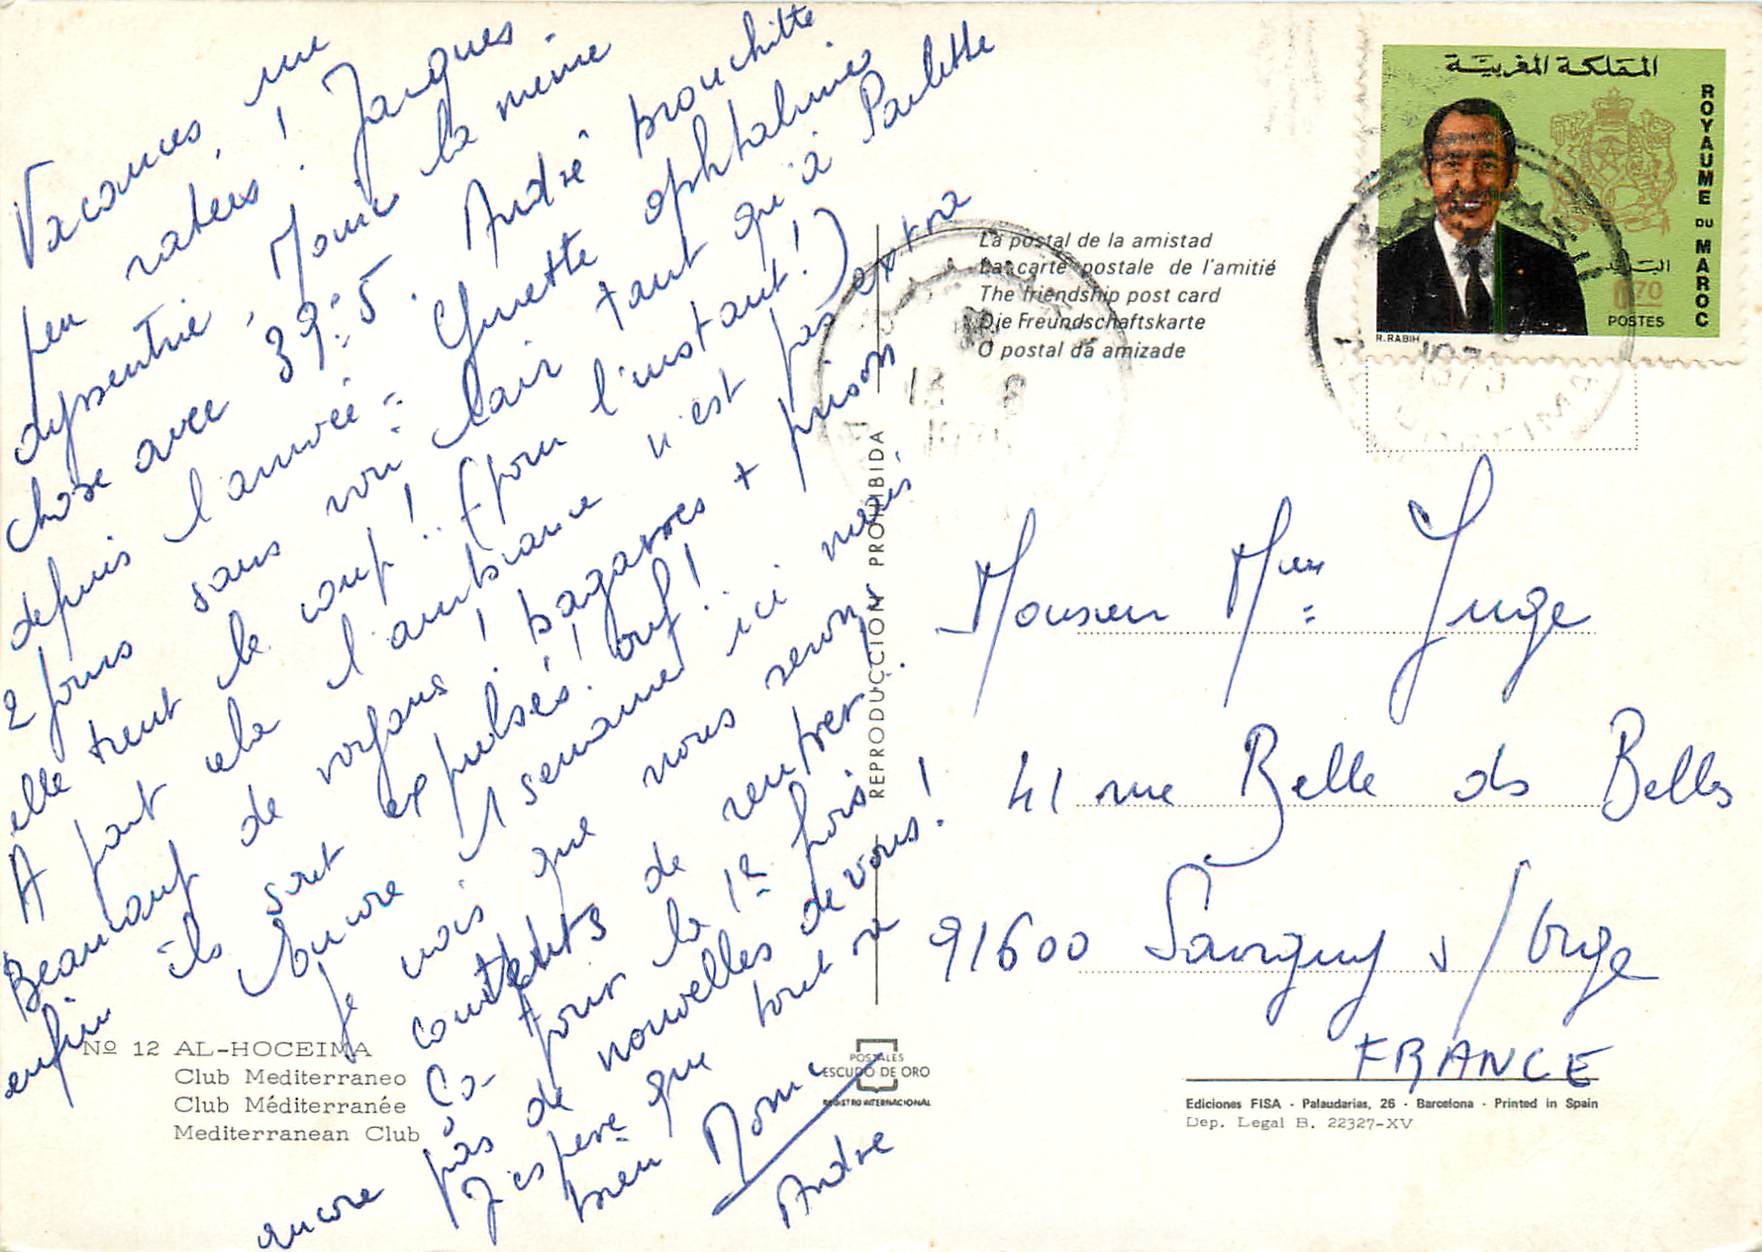 Vacances, un
peu ratées ! Jacques
dysentrie, Monic la même
chose avec 39°5. André bronchite
depuis l'arrivée = Ginette ophtalmies
2 jours sans voir clair tant qu'à Paulette
elle tient le coup !.. (pour l'instant !)
A part cela l'ambiance n'est pas extra
Beaucoup de voyous ! bagarres + prison
enfin ils sont expulsés ! ouf !
Encore 1 semaine ici mais
je crois que nous serons
contents de rentrer.
Co- pour la 1e fois
encore pas de nouvelles de vous !
J'espère que tout va
bien Monic
André
La postal de la amistad
La carte postale de l'amitié
The friendship post card
Die Freundschaftskarte
O postal da amizade
REPRODUCCION PROHIBIDA
المملكة المغربية
ROYAUME DU MAROC
البريد
0,70
POSTES
R.RABIH
Monsieur Mme Juge
41 rue Belle des Belles
91600 Savigny s/Orge
FRANCE
Nº 12 AL-HOCEIMA
Club Mediterraneo
Club Méditerranée
Mediterranean Club
POSTALES
ESCUDO DE ORO
REGISTRO INTERNACIONAL
Ediciones FISA - Palaudarias, 26 - Barcelona - Printed in Spain
Dep. Legal B. 22327-XV